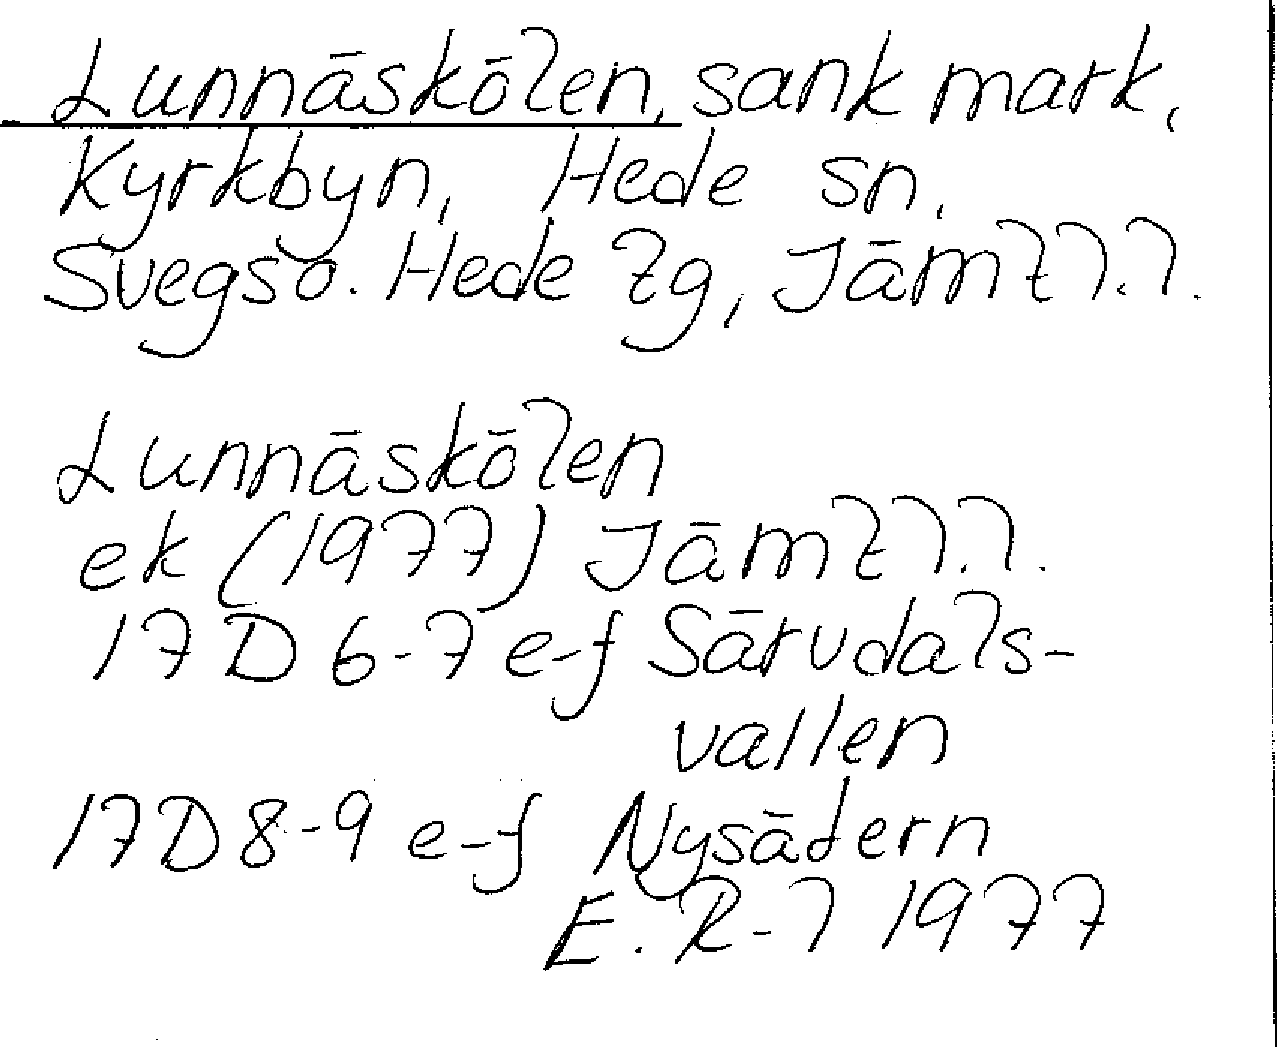 Lunnäskölen, sank mark,
Kyrkbyn, Hede sn,
Svegs o. Hede tg, Jämtl.l.
Lunnäskölen
ek (1977) Jämtl.l.
17 D 6-7 e-f Särvdals-
vallen
17D 8-9 e-f Nysätern
E. R-l 1977